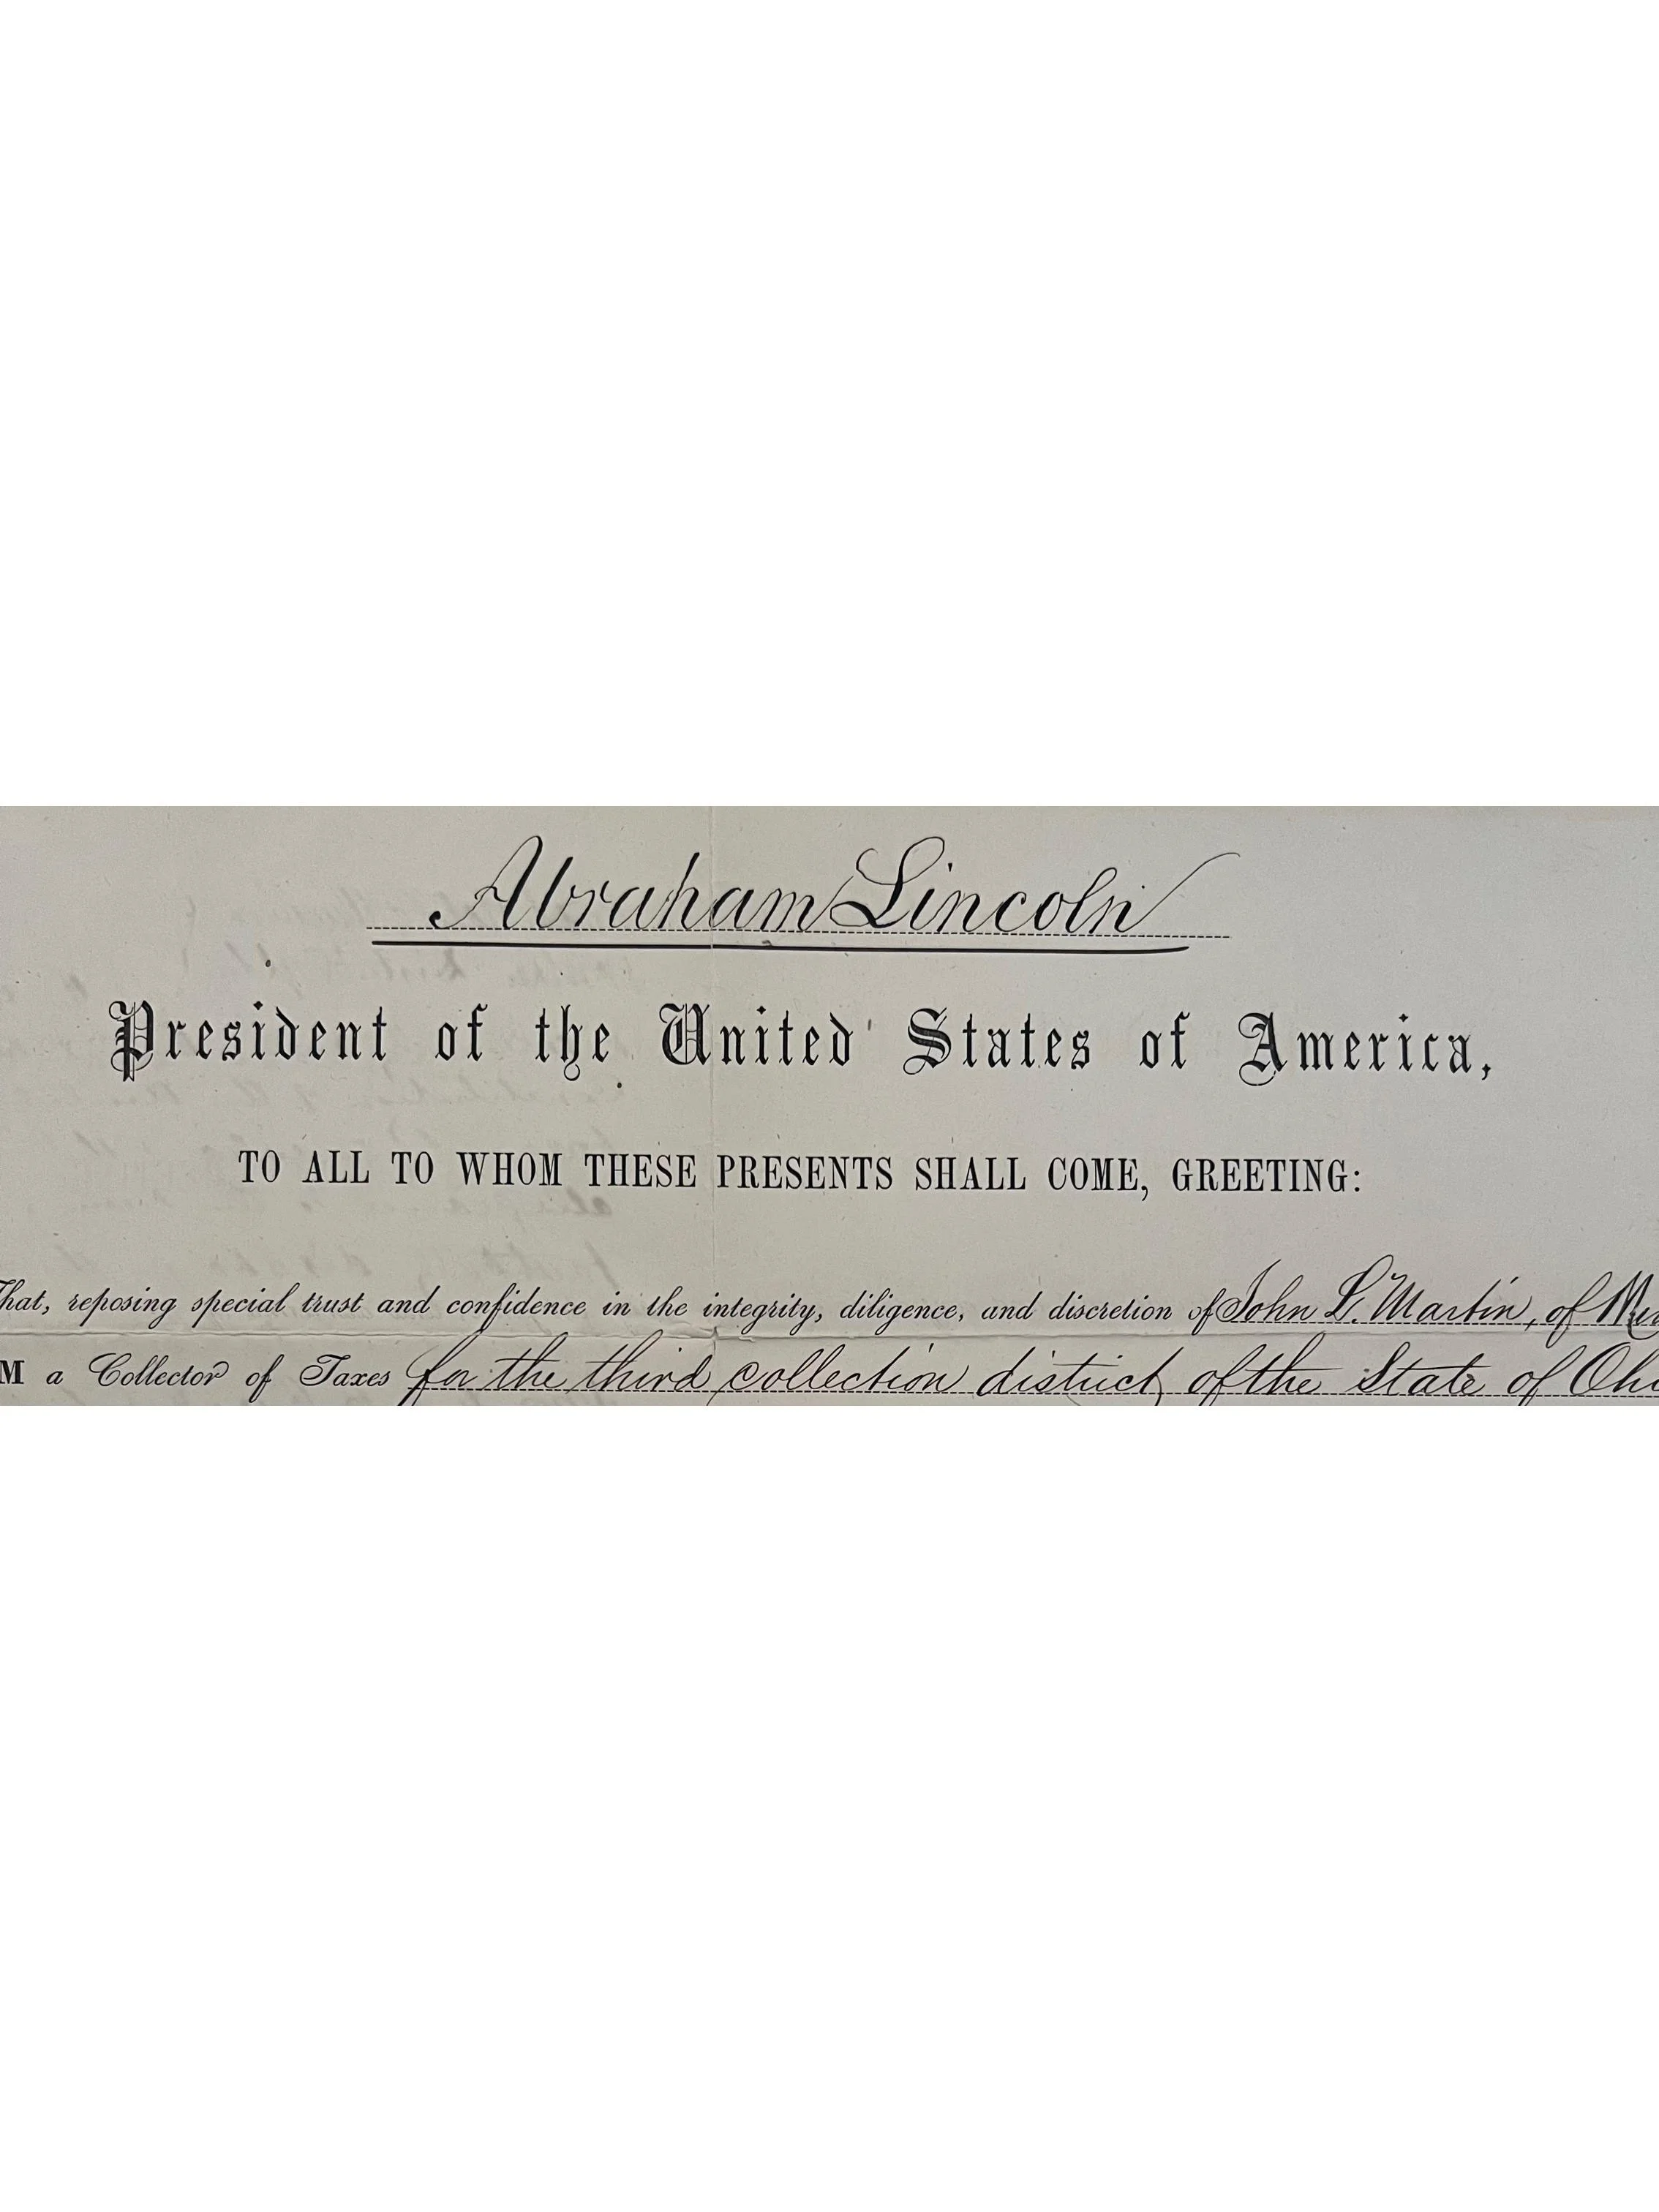 Abraham Lincoln
President of the United States of America,
TO ALL TO WHOM THESE PRESENTS SHALL COME, GREETING:
That, reposing special trust and confidence in the integrity, diligence, and discretion of John L. Martin, of
M a Collector of Taxes for the third collection district of the State of